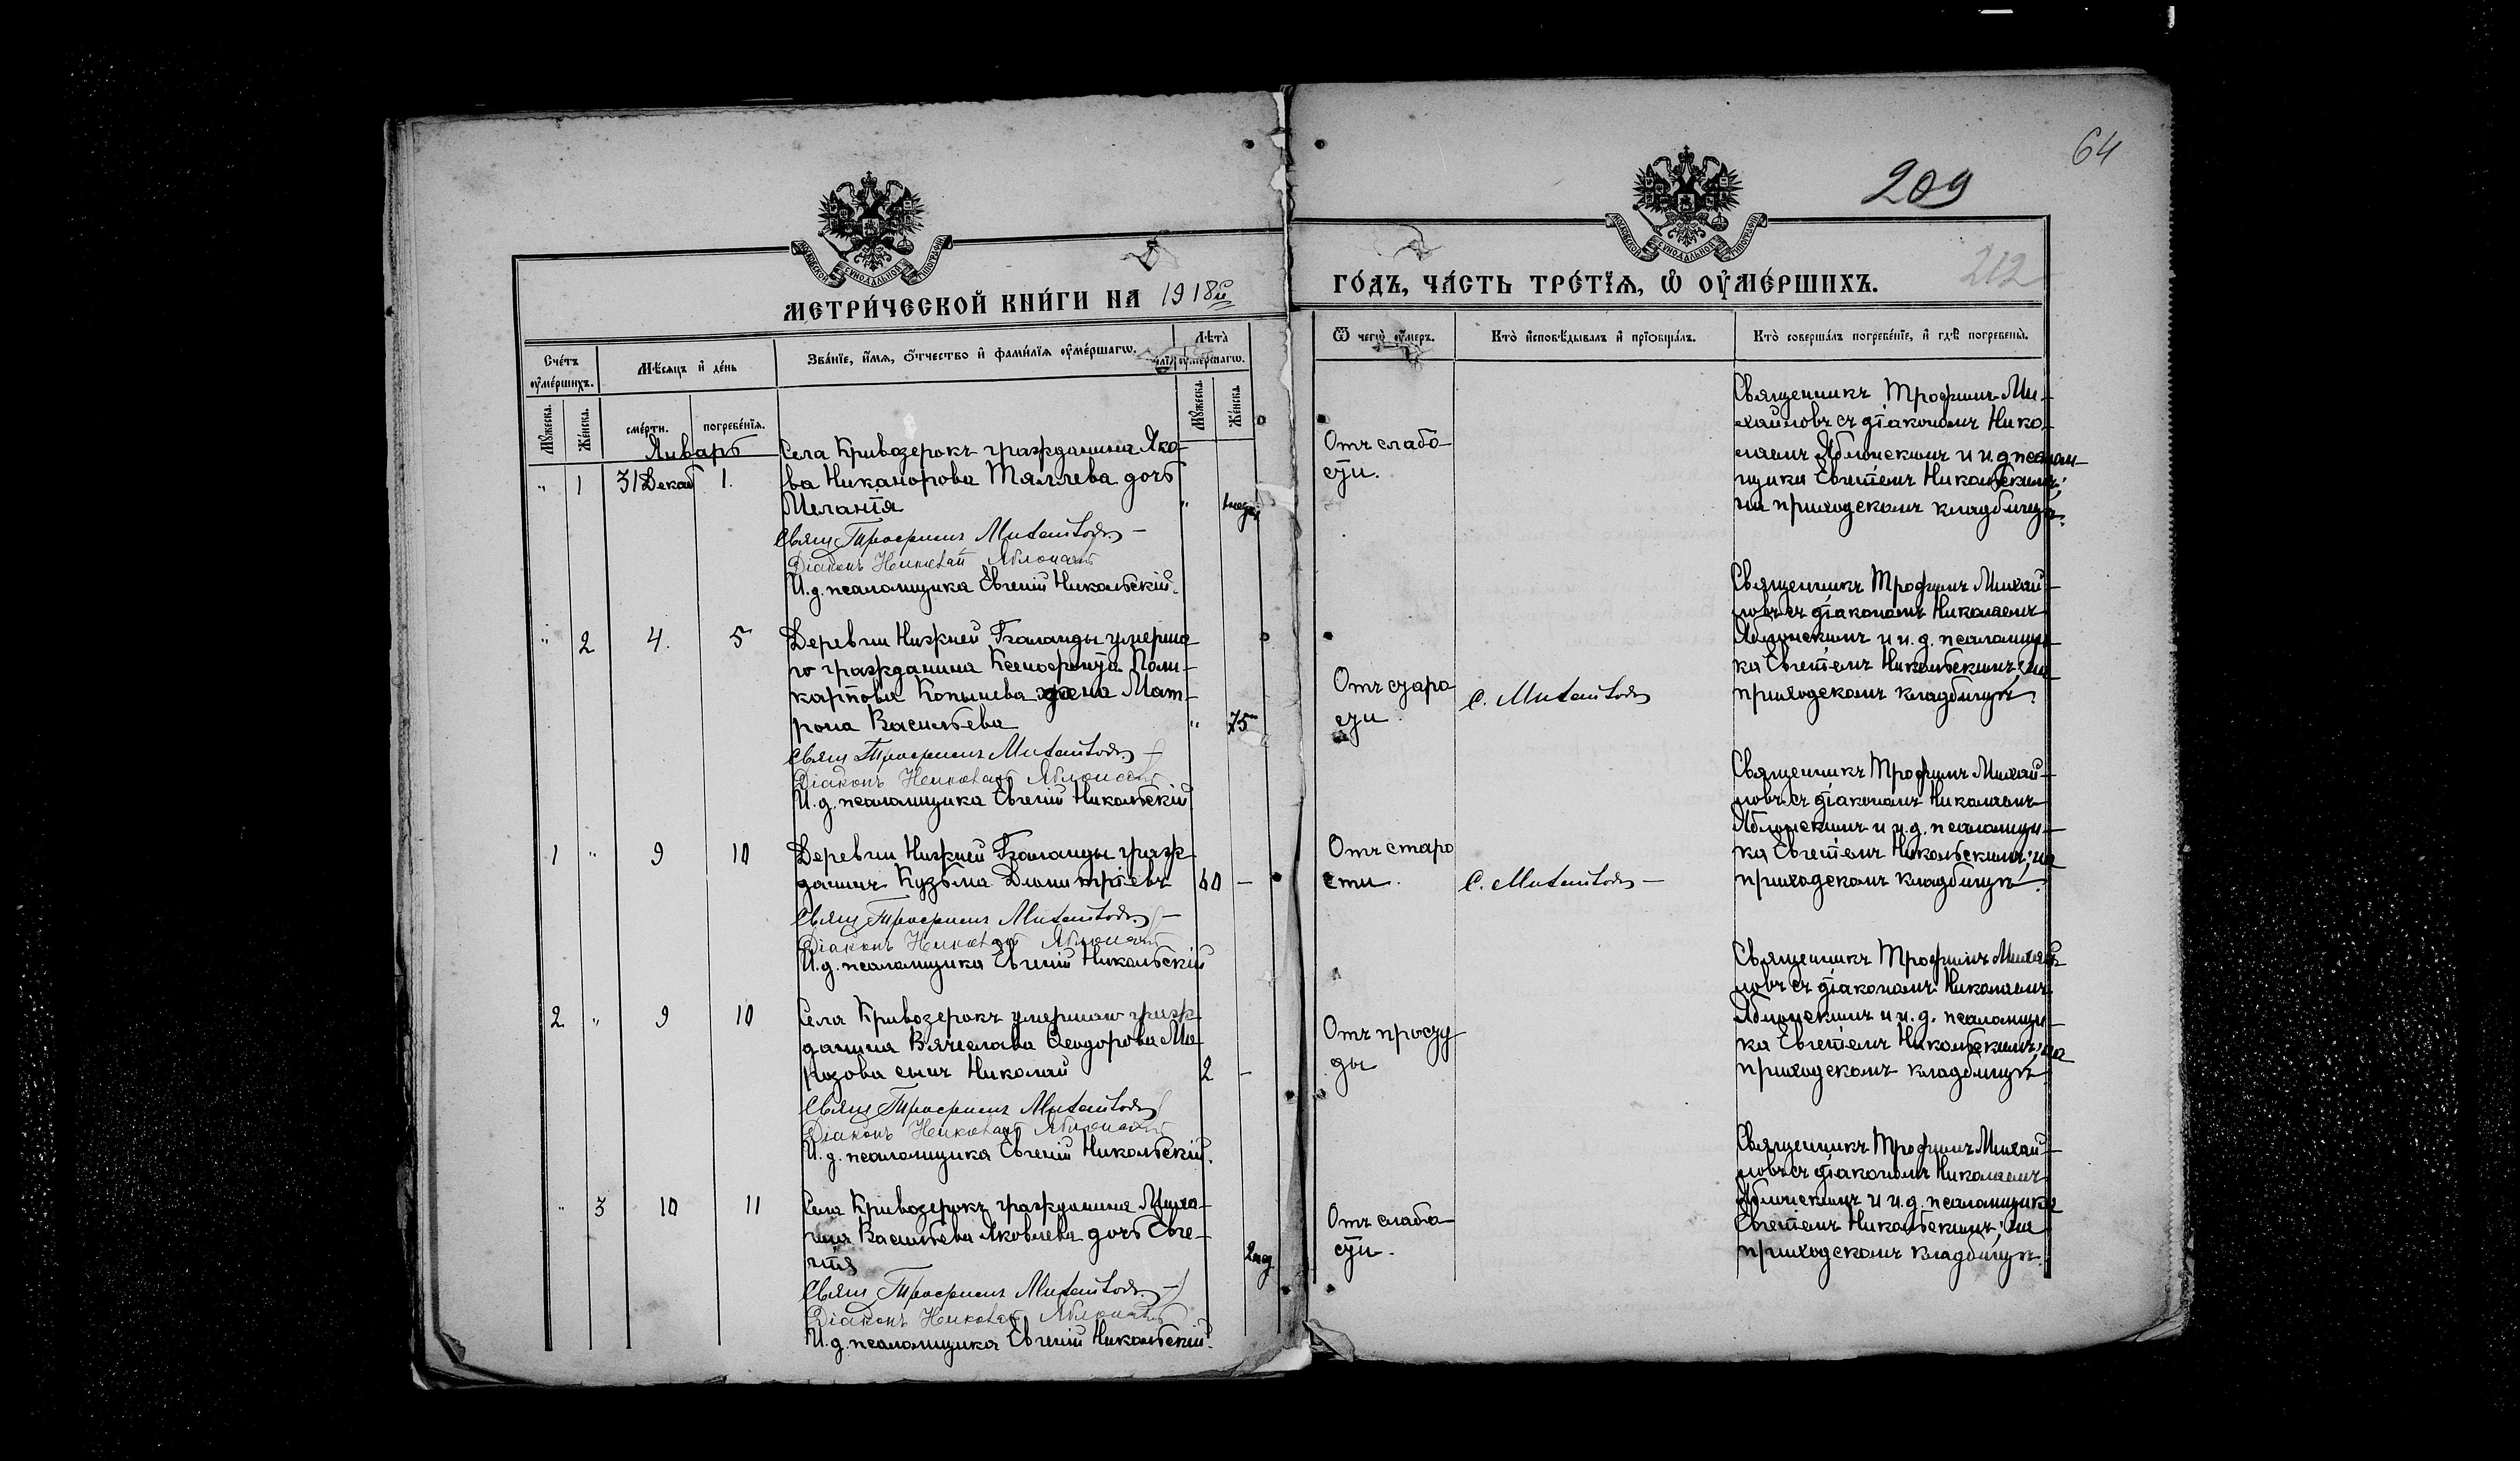 64
209
212
МОСКОВСКОЙ СУНОДАЛЬНОЙ ТИПОГРАФІИ
МОСКОВСКОЙ СУНОДАЛЬНОЙ ТИПОГРАФІИ
МЕТРИ́ЧЕСКОЙ КНИ́ГИ НА 1918й
ГО́ДЪ, ЧА́СТЬ ТРЕ́ТЇѦ, Ѡ҆ ОУ҆МЕ́РШИХЪ.
Сче́тъ оу҆ме́ршихъ.
Мѣ́сѧцъ и҆ де́нь
Зва́нїе, и҆́мѧ, ѻ҆́тчество и҆ фами́лїѧ оу҆ме́ршагѡ.
Лѣ́та оу҆ме́ршагѡ.
Ѿ чегѡ̀ оу҆́меръ.
Кто̀ и҆сповѣ́дывалъ и҆ прїѻбща́лъ.
Кто̀ соверша́лъ погребе́нїе, и҆ гдѣ̀ погребены̀.
Мꙋ́жеска.
Же́нска.
сме́рти.
погребе́нїѧ.
Мꙋ́жеска.
Же́нска.
Январь
" 1 31 Декаб 1.
Села Кривозерокъ гражданина Яко-
ва Никанорова Тяллева дочь
Меланія
Свящ Трофимъ Михайловъ
Діаконъ Николай Яблонскій
И. д. псаломщика Евгеній Никольскій.
Отъ слабо-
сти.
Священникъ Трофимъ Ми-
хайловъ съ діакономъ Нико-
лаемъ Яблонскимъ и и. д. псалом-
щика Евгеніемъ Никольскимъ;
на приходскомъ кладбищѣ.
" 2 4. 5
Деревни Нижней Баланды умерша-
го гражданина Ксенофонта Поли-
карпова Копылева жена Мат-
рона Васильева " 75
Свящ Трофимъ Михайловъ
Діаконъ Николай Яблонскій
И. д. псаломщика Евгеній Никольскій
Отъ старо
сти.
С. Михайловъ
Священникъ Трофимъ Михай-
ловъ съ діакономъ Николаемъ
Яблонскимъ и и. д. псаломщи-
ка Евгеніемъ Никольскимъ; на
приходскомъ кладбищѣ.
1 " 9 10
Деревни Нижней Баланды граж-
данинъ Кузьма Димитріевъ 60 –
Свящ Трофимъ Михайловъ
Діаконъ Николай Яблонскій
И. д. псаломщика Евгеній Никольскій
Отъ старо
сти.
С. Михайловъ
Священникъ Трофимъ Михай-
ловъ съ діакономъ Николаемъ
Яблонскимъ и и. д. псаломщи-
ка Евгеніемъ Никольскимъ; на
приходскомъ кладбищѣ.
2 " 9 10
Села Кривозерокъ умершаго граж-
данина Вячеслава Ѳеодорова Мо-
розова сынъ Николай 2 –
Свящ Трофимъ Михайловъ
Діаконъ Николай Яблонскій
И. д. псаломщика Евгеній Никольскій.
Отъ просту
ды
Священникъ Трофимъ Михай
ловъ съ діакономъ Николаемъ
Яблонскимъ и и. д. псаломщи-
ка Евгеніемъ Никольскимъ; на
приходскомъ кладбищѣ
" 3 10 11
Села Кривозерокъ гражданина Миха-
ила Васильева Яковлева дочь Евге-
нія 2 нед.
Свящ Трофимъ Михайловъ
Діаконъ Николай Яблонскій
И. д. псаломщика Евгеній Никольскій.
Отъ слабо-
сти.
Священникъ Трофимъ Михай-
ловъ съ діакономъ Николаемъ
Яблонскимъ и и. д. псаломщика
Евгеніемъ Никольскимъ; на
приходскомъ кладбищѣ.